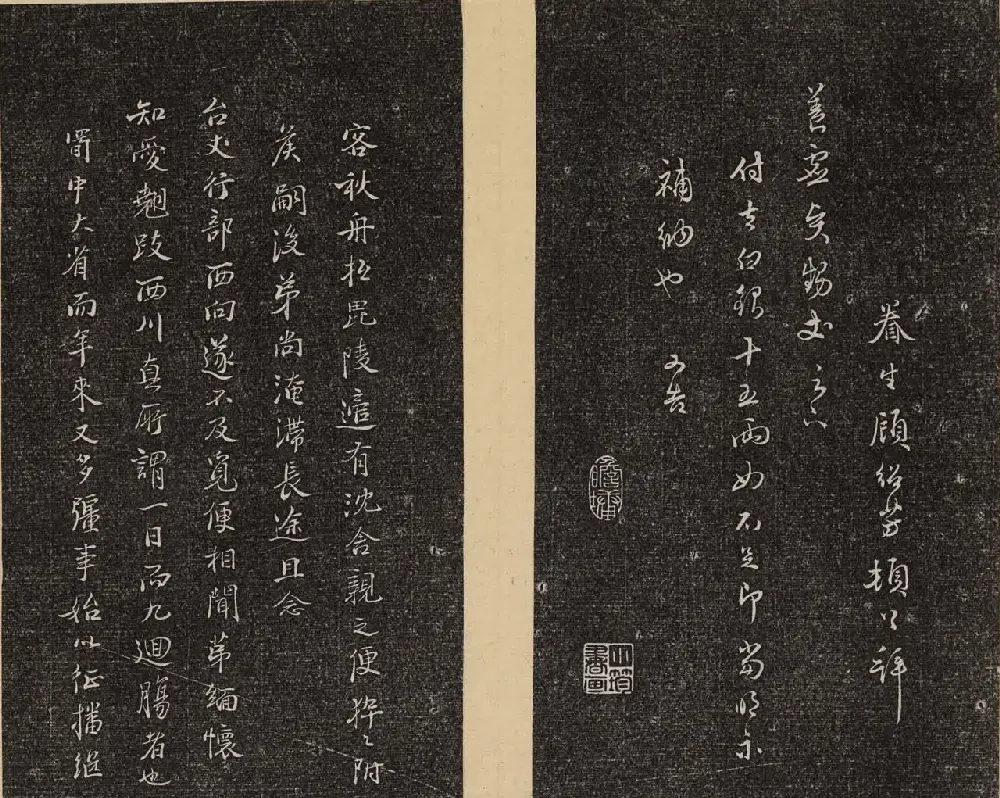 眷生顧紹芳頓首拜
善
付去白銀十五兩如不足即當明示
補納也 又告
客秋舟松毘陵適有沈含親之便猝々附
候嗣後弟尚淹滯長途且念
台丈行部西向遂不及覓便相聞弟緬懷
知愛翹跂西川真所謂一日而九迴腸者也
蜀中大省而年來又多彊事始以征播繼